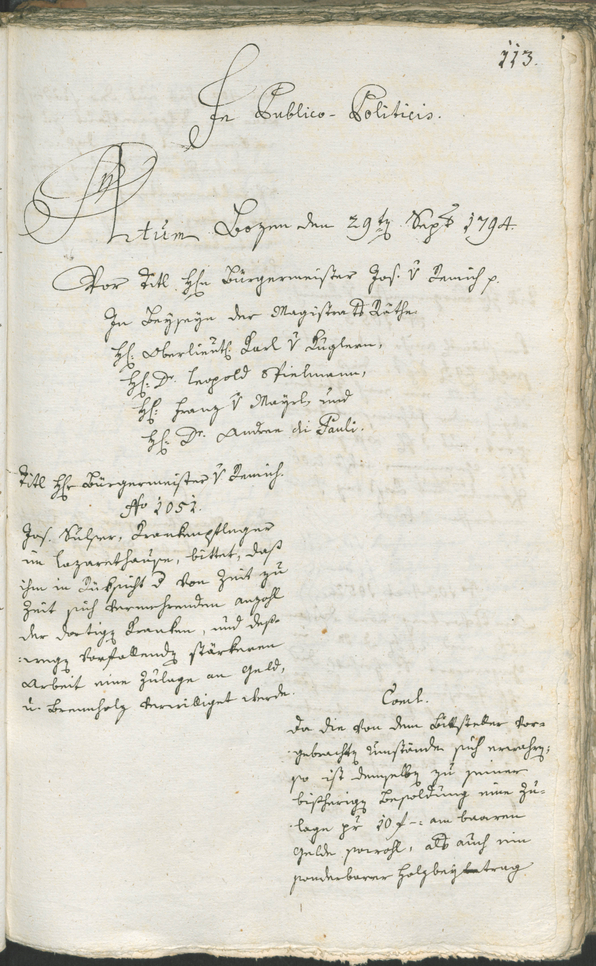 113.
In Publico-Politicis.
Actum Bozen den 29ten Sept. 1794.
Vor Titl Hrn Bürgermeister Jos. v Remich p.
In Beyseyn der Magistrats Räthe
H: Oberlieut: Karl v Kuglern,
H: Dr. Leopold Spielmann,
H: Franz v Mayrl, und
H: Dr. Andree di Pauli.
Titl Hr Bürgermeister v Remich.
No 1051.
Jos. Sulser, Krankenpfleger
im Lazarethhause, bittet, daß
ihm in Rüksicht d von Zeit zu
Zeit sich vermehrenden anzahl
der dortigen Kranken, und deß-
wegen vorfallenden stärkeren
Arbeit eine Zulage an Geld,
u: Brennholz verwilliget werde.
Concl.
Da die von dem Bittsteller vor-
gebrachten Umstände sich erwahren;
so ist demselben zu seiner
bisherigen Besoldung eine Zu-
lage pr 10 f -: am baaren
Gelde sowohl, als auch ein
sonderbarer Holzbeytrag